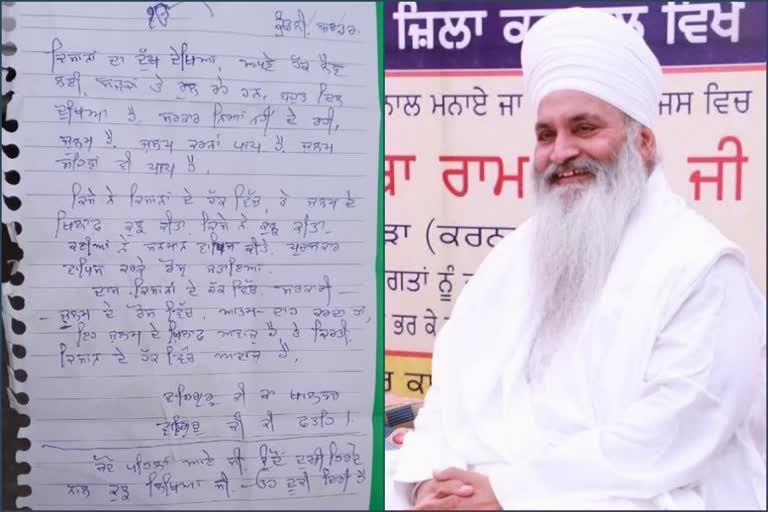 ੴ
ਕੁੰਡਲੀ ਬਾਰਡਰ
ਕਿਸਾਨਾਂ ਦਾ ਦੁੱਖ ਦੇਖਿਆ, ਆਪਣੇ ਹੱਕ ਲੈਣ
ਲਈ, ਸੜਕਾਂ ਤੇ ਰੁਲ ਰਹੇ ਹਨ, ਬਹੁਤ ਦਿਲ
ਦੁਖਿਆ ਹੈ. ਸਰਕਾਰ ਨਿਆਂ ਨਹੀਂ ਦੇ ਰਹੀ,
ਜੁਲਮ ਹੈ. ਜੁਲਮ ਕਰਨਾ ਪਾਪ ਹੈ. ਜੁਲਮ
ਸਹਿਣਾ ਵੀ ਪਾਪ ਹੈ.
ਕਿਸੇ ਨੇ ਕਿਸਾਨਾਂ ਦੇ ਹੱਕ ਵਿੱਚ, ਤੇ ਜੁਲਮ ਦੇ
ਖਿਲਾਫ ਕੁਝ ਕੀਤਾ. ਕਿਸੇ ਨੇ ਕੁਝ ਕੀਤਾ.
ਕਈਆਂ ਨੇ ਸਨਮਾਨ ਵਾਪਿਸ ਕੀਤੇ. ਪੁਰਸਕਾਰ
ਵਾਪਿਸ ਕਰਕੇ ਰੋਸ ਜਤਾਇਆ.
ਦਾਸ ਕਿਸਾਨਾਂ ਦੇ ਹੱਕ ਵਿੱਚ. ਸਰਕਾਰੀ
ਜੁਲਮ ਦੇ ਰੋਸ ਵਿੱਚ. ਆਤਮ-ਦਾਹ ਕਰਦਾ ਹਾਂ,
ਇਹ ਜੁਲਮ ਦੇ ਖਿਲਾਫ ਅਵਾਜ਼ ਹੈ. ਤੇ ਕਿਰਤੀ
ਕਿਸਾਨ ਦੇ ਹੱਕ ਵਿੱਚ ਅਵਾਜ਼ ਹੈ.
ਵਾਹਿਗੁਰੂ ਜੀ ਕਾ ਖਾਲਸਾ
ਵਾਹਿਗੁਰੂ ਜੀ ਕੀ ਫਤਹਿ।
ਪਹਿਲਾਂ ਆਏ ਸੀ,
ਨਾਲ ਕੁਝ ਲਿਖਿਆ ਸੀ. ਹੈ
ਜ਼ਿਲਾ ਵਿਖੇ
ਨਾਲ ਮਨਾਏ ਜਾ ਜਿਸ ਵਿਚ
ਬਾ ਰਾਮ ਜੀ
ੜਾ (ਕਰਨ
ਗਤਾਂ ਨੂੰ
ਭਰ ਕੇ
ਰ ਕਾ